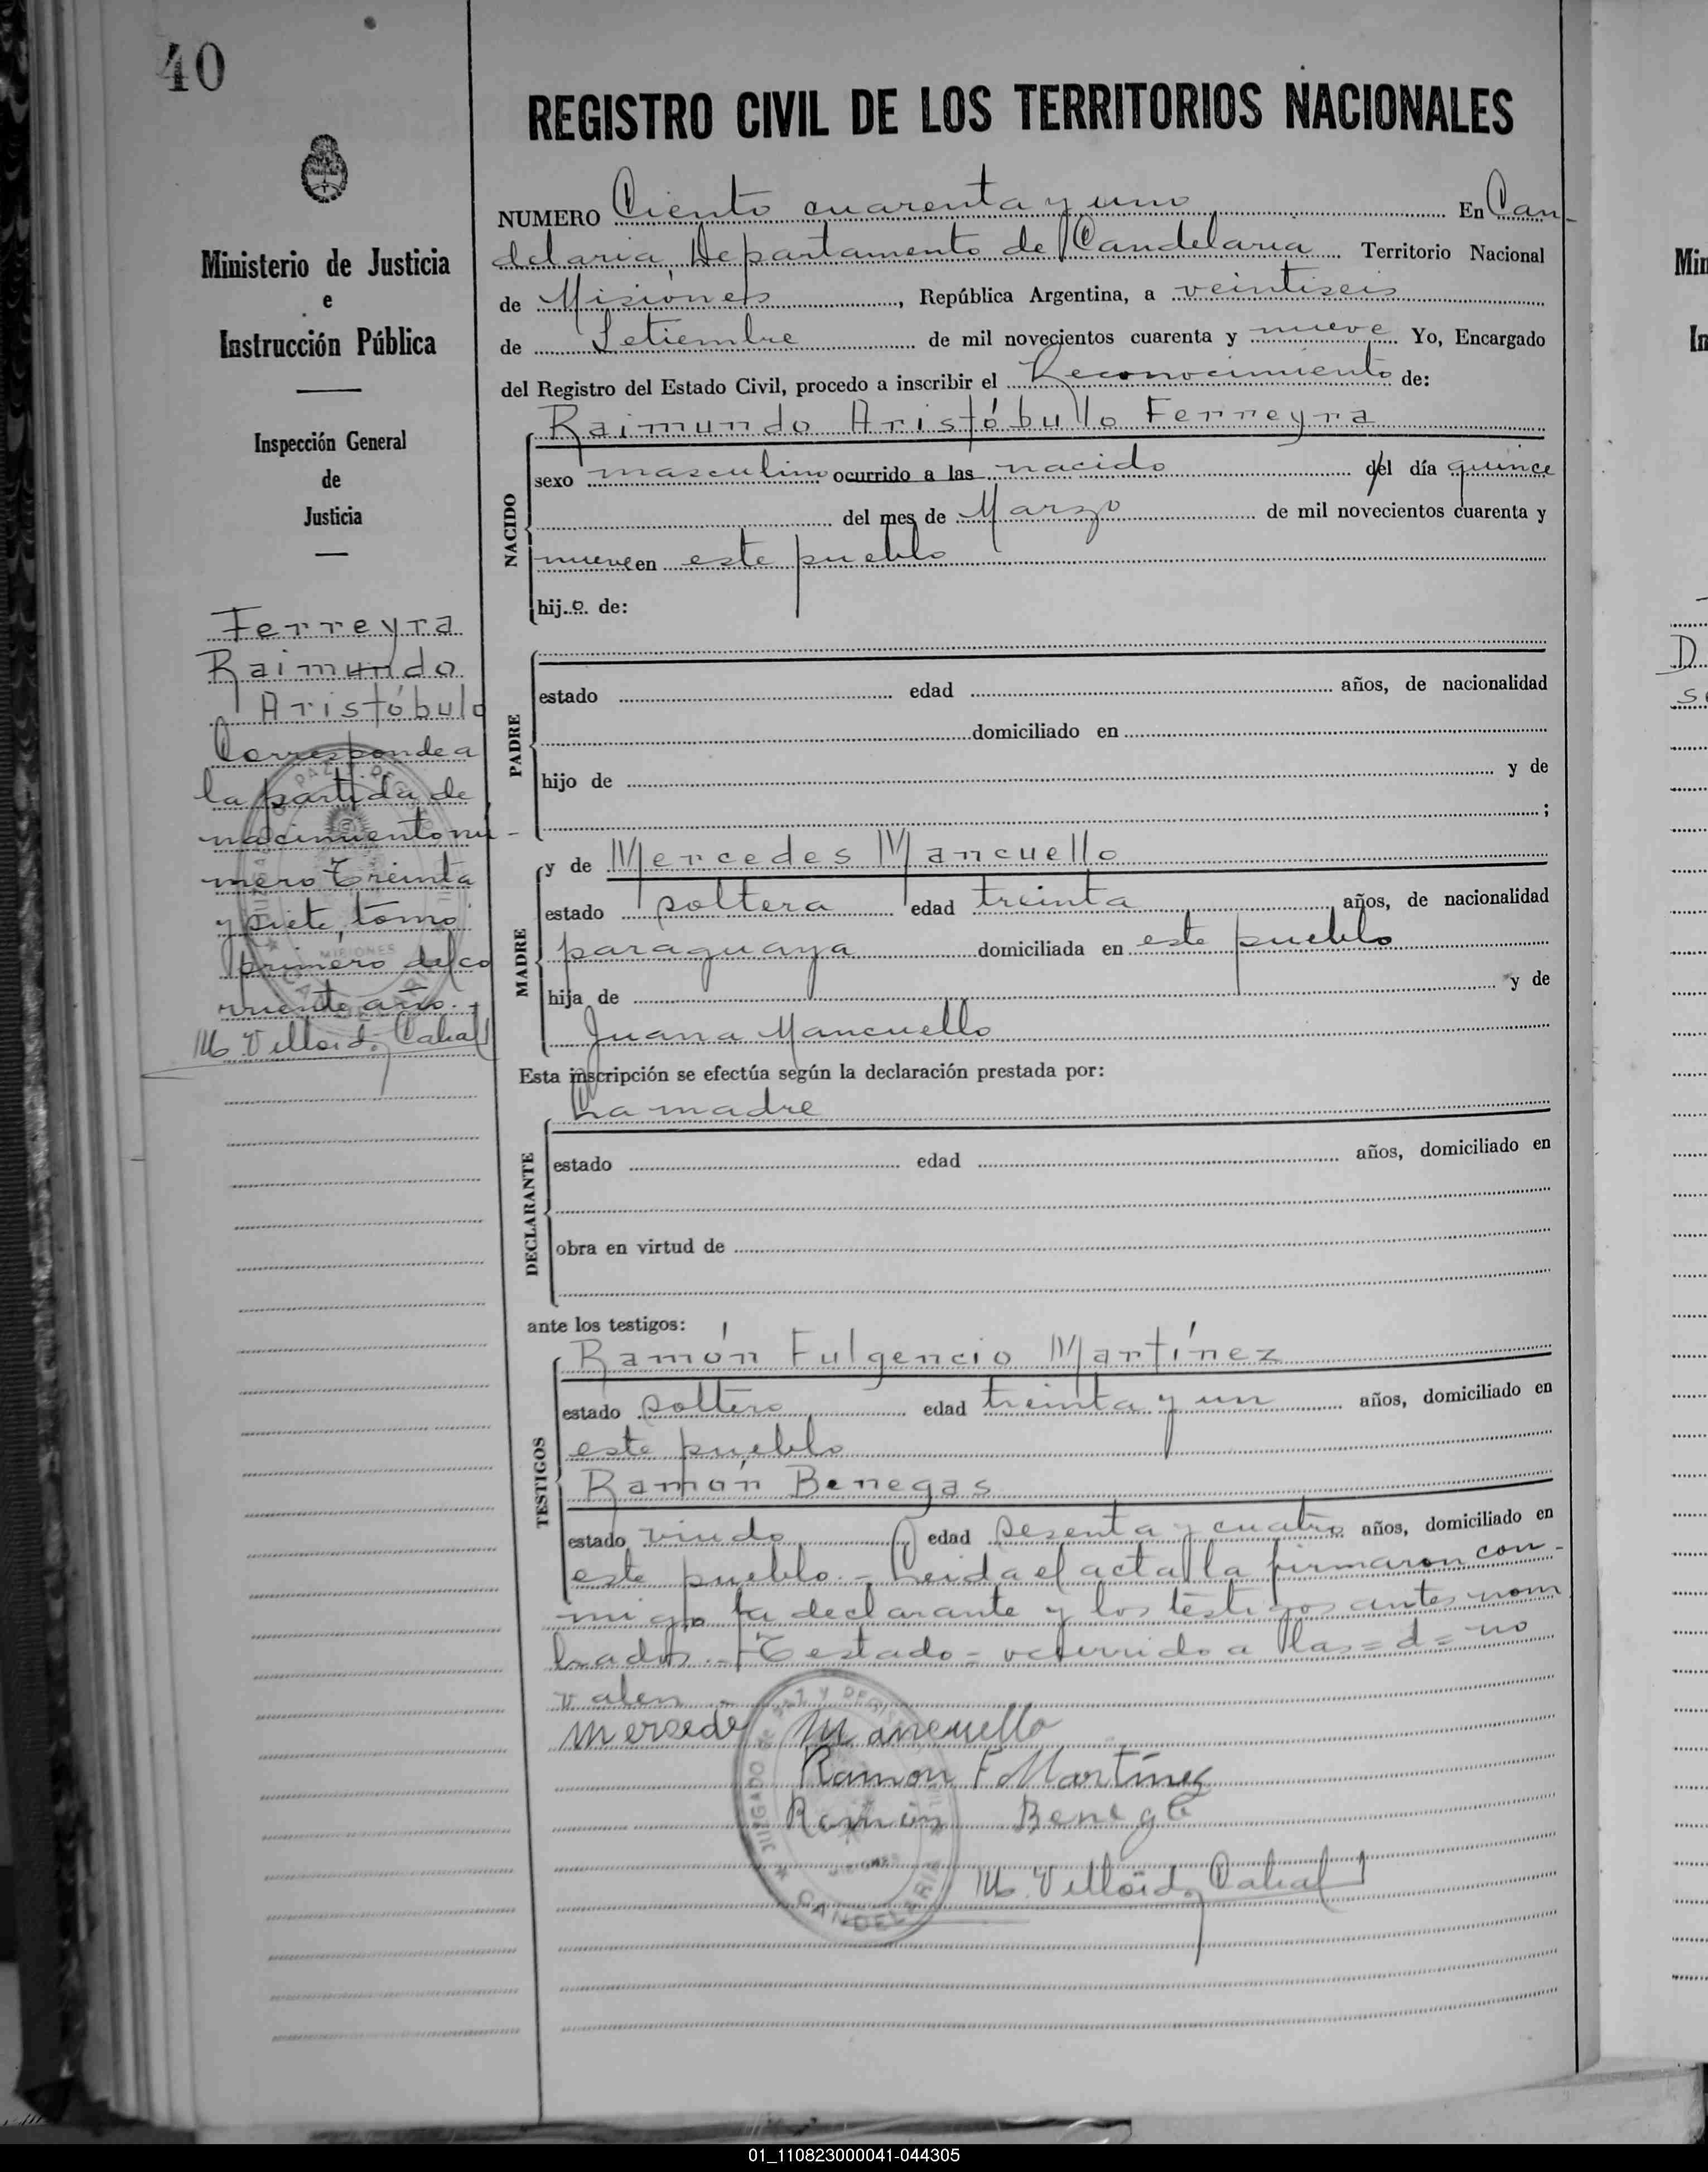 40
REGISTRO CIVIL DE LOS TERRITORIOS NACIONALES
Ministerio de Justicia
e
Instrucción Pública
Inspección General
de
Justicia
Ferreyra
Raimundo
Aristóbulo
Corresponde a
la partida de
nacimiento nú-
mero treinta
y siete, tomo
primero del co
rriente año.-
M. Villoid Cabal
NUMERO Ciento cuarenta y uno En Can-
delaria, Departamento de Candelaria Territorio Nacional
de Misiones, República Argentina, a veintiseis
de Setiembre de mil novecientos cuarenta y nueve Yo, Encargado
del Registro del Estado Civil, procedo a inscribir el Reconocimiento de:
Raimundo Aristóbullo Ferreyra
NACIDO
sexo masculino ocurrido a las nacido del día quince
del mes de Marzo de mil novecientos cuarenta y
nueve en este pueblo
hijo de:
PADRE
estado edad años, de nacionalidad
domiciliado en
hijo de y de
;
MADRE
y de Mercedes Mancuello
estado soltera edad treinta años, de nacionalidad
paraguaya domiciliada en este pueblo
hija de y de
Juana Mancuello
Esta inscripción se efectúa según la declaración prestada por:
La madre
DECLARANTE
estado edad años, domiciliado en
obra en virtud de
ante los testigos:
TESTIGOS
Ramón Fulgencio Martínez
estado soltero edad treinta y un años, domiciliado en
este pueblo
Ramón Benegas
estado viudo edad sesenta y cuatro años, domiciliado en
este pueblo.- Leida el acta la firmaron con-
migo la declarante y los testigos antes nom
brados.- Testado = ocurrido a las = d = no
valen.-
Mersede Mancuello
Ramon F Martínez
Ramón
JUZGADO DE PAZ Y DE
MISIONES
CANDELARIA
M. Villoid Cabal
Min
In
D
01_110823000041-044305